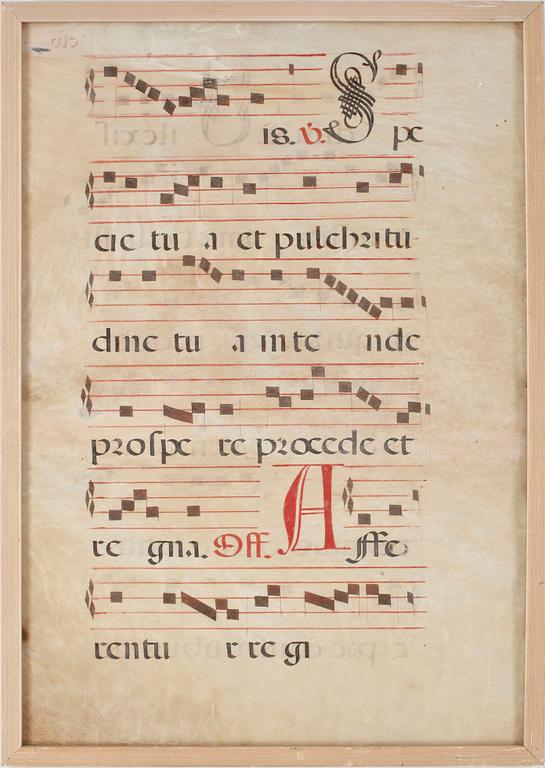 is. V. Spe
cie tu a et pulchritu-
dine tu a inte nde
prospe re procede et
re gna. Off. Affe
rentu r regi